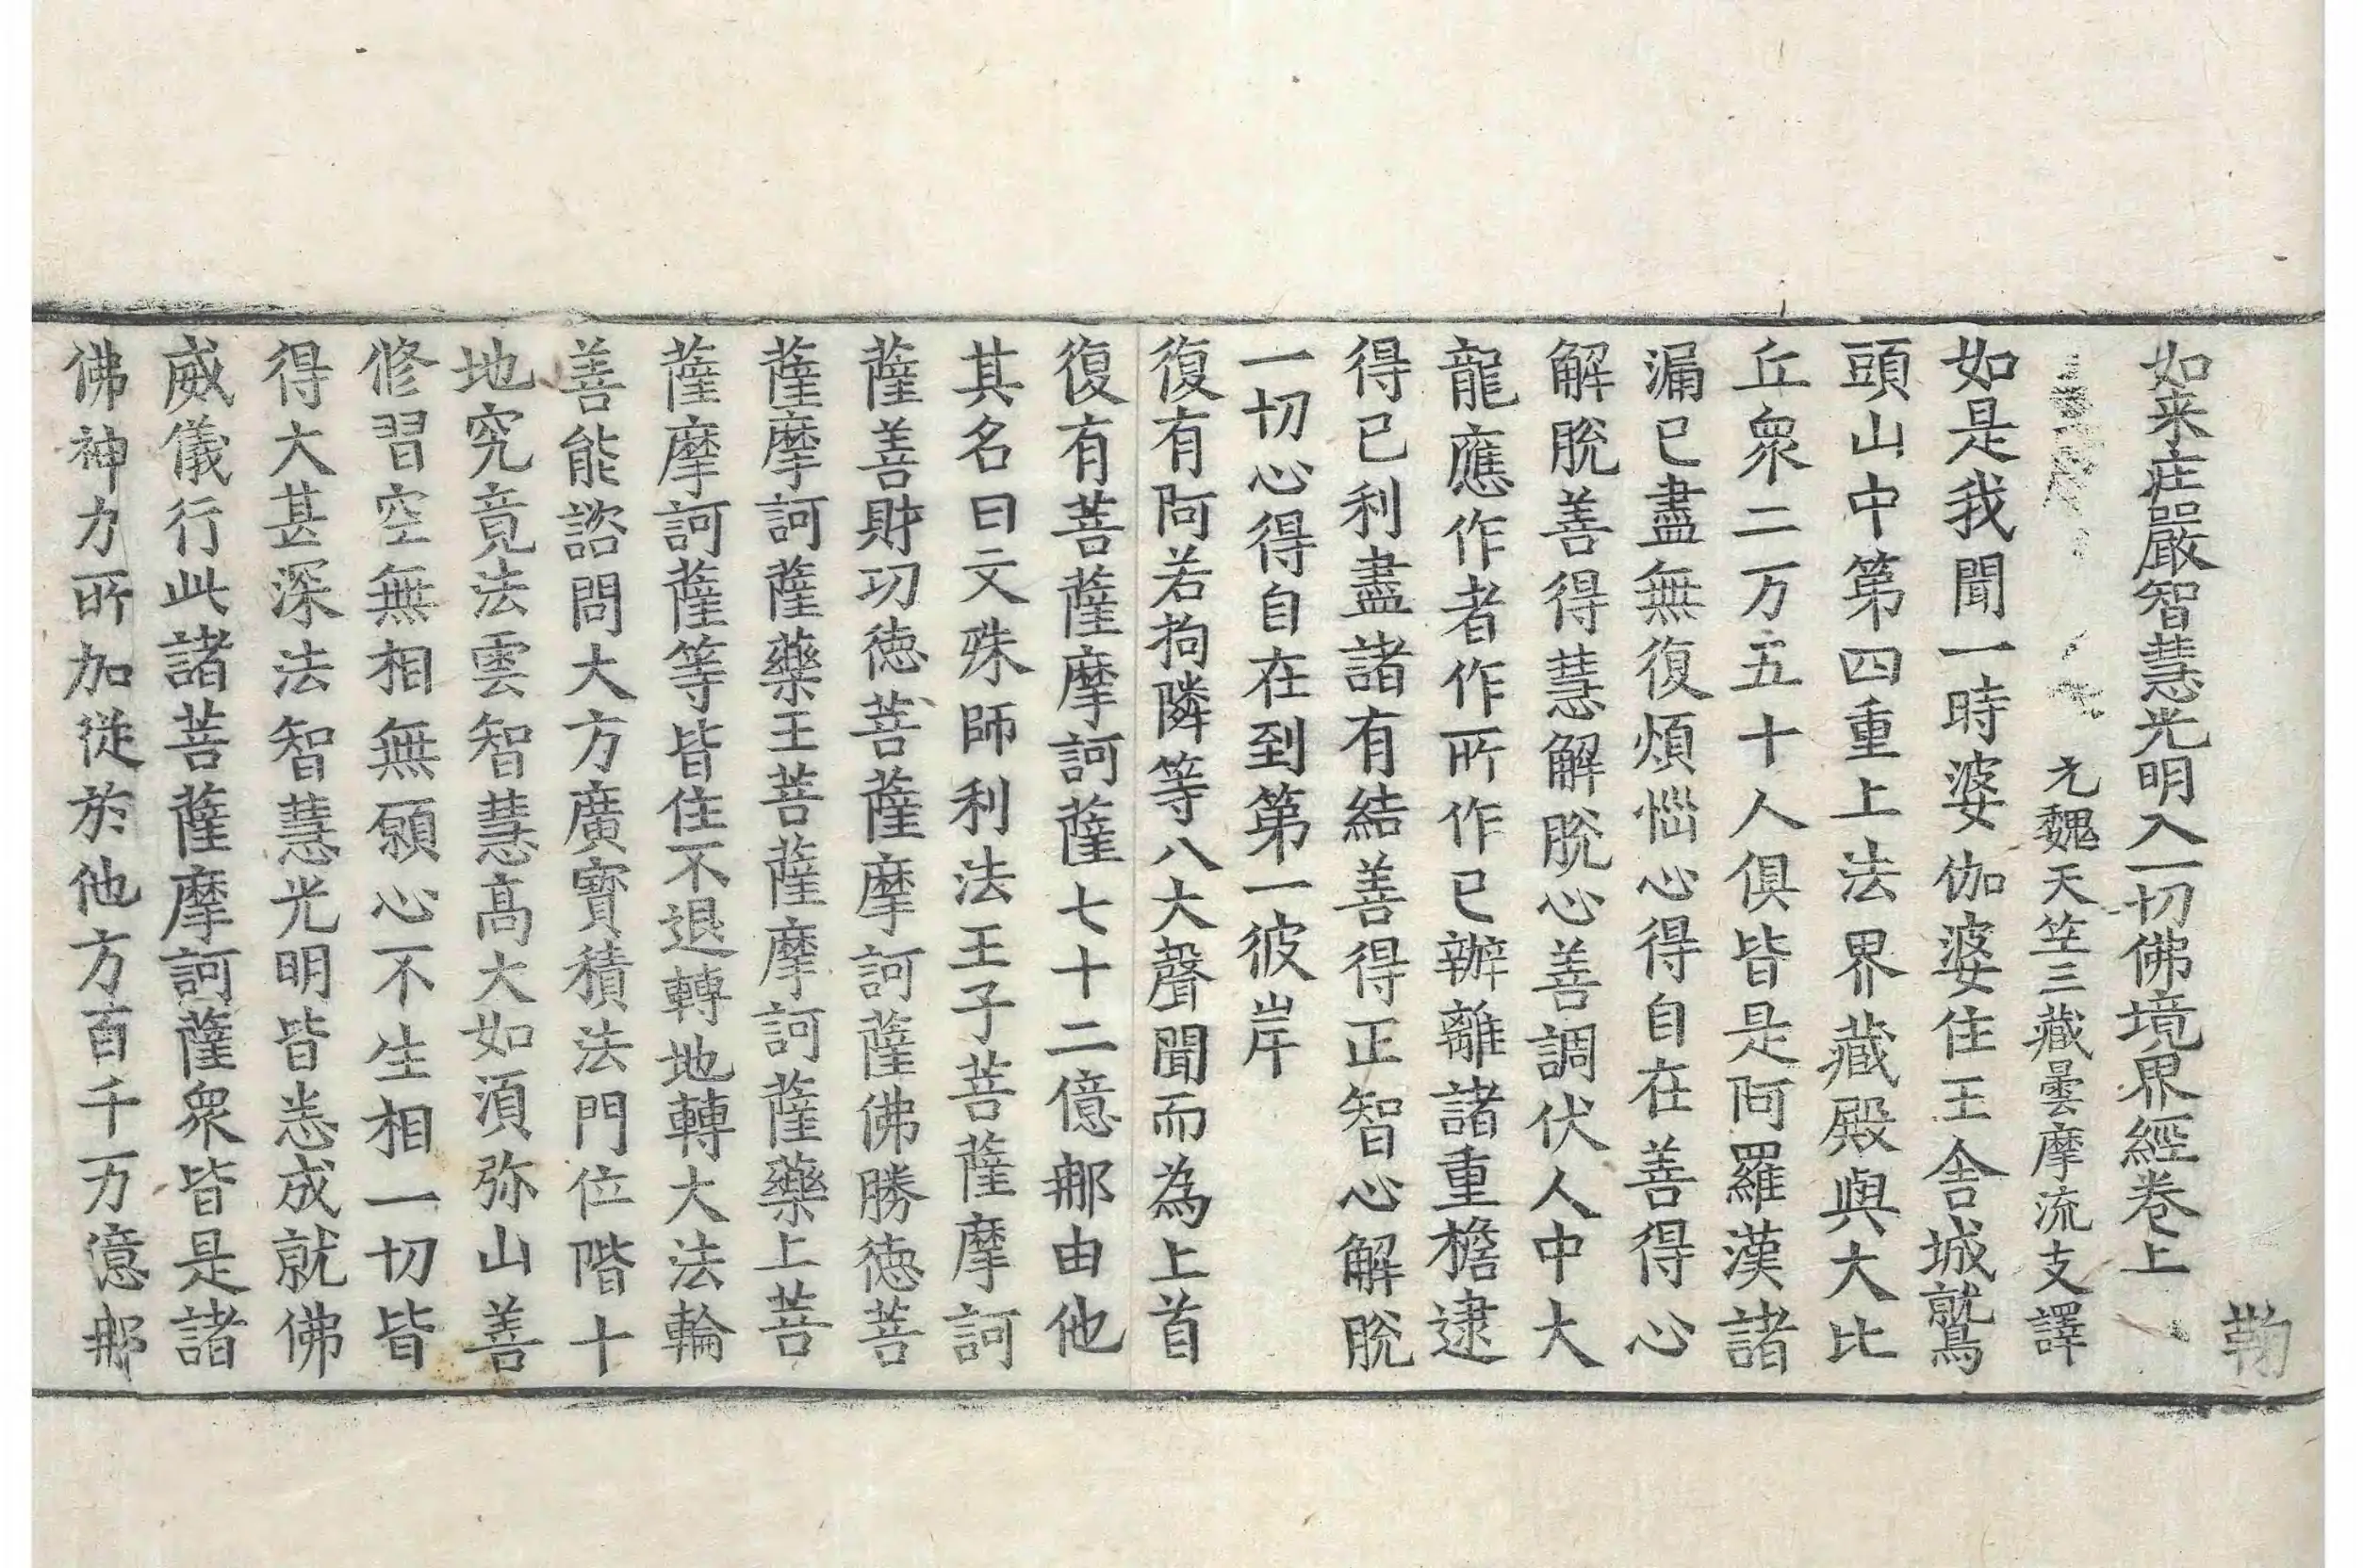 勒
如来庄嚴智慧光明入一切佛境界經卷上
元魏天竺三藏曇摩流支譯
如是我聞一時婆伽婆住王舍城就鳥
頭山中第四重上法界藏殿與大比
丘衆二万五十人俱皆是阿羅漢諸
漏已盡無復煩惱心得自在善得心
解脫善得慧解脫心善調伏人中大
龍應作者作所作已辦離諸重檐逮
得已利盡諸有結善得正智心解脫
一切心得自在到第一彼岸
復有阿若拘隣等八大聲聞而為上首
復有菩薩摩訶薩七十二億那由他
其名曰文殊師利法王子菩薩摩訶
薩善財功徳菩薩摩訶薩佛勝徳菩
薩摩訶薩藥王菩薩摩訶薩藥上菩
薩摩訶薩等皆住不退轉地轉大法輪
善能諮問大方廣寳積法門位階十
地究竟法雲智慧高大如湏弥山善
修習空無相無願心不生相一切皆
得大甚深法智慧光明皆悉成就佛
威儀行此諸菩薩摩訶薩衆皆是諸
佛神力所加従於他方百千万億那